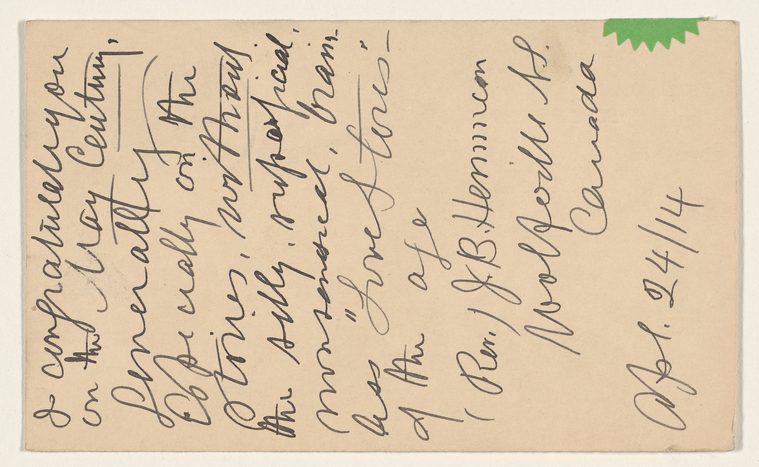 I congratulate you
on the May Century,
Generally
Especially on the
Stories, without
the silly, superficial,
nonsensical, brain-
less "Love Stories"
of the age
(Rev.) J.B. Hemmeon
Wolfville N.S.
Canada
Apl. 24/14